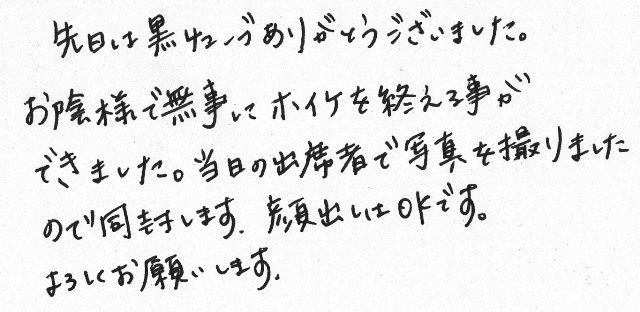 先日は黒チューブありがとうございました。
お陰様で無事にホイケを終える事が
できました。当日の出席者で写真を撮りました
ので同封します。顔出しはOKです。
よろしくお願いします。